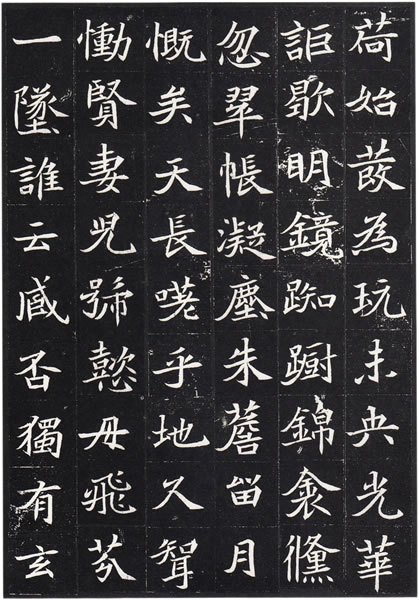 荷始為玩未央光華
詎歇明鏡踟躕錦衾儵
忽翠帳凝塵朱薝畄月
慨矣天長嗟乎地久聟
慟賢妻児號懿母飛芬
一墜誰云臧否獨有玄